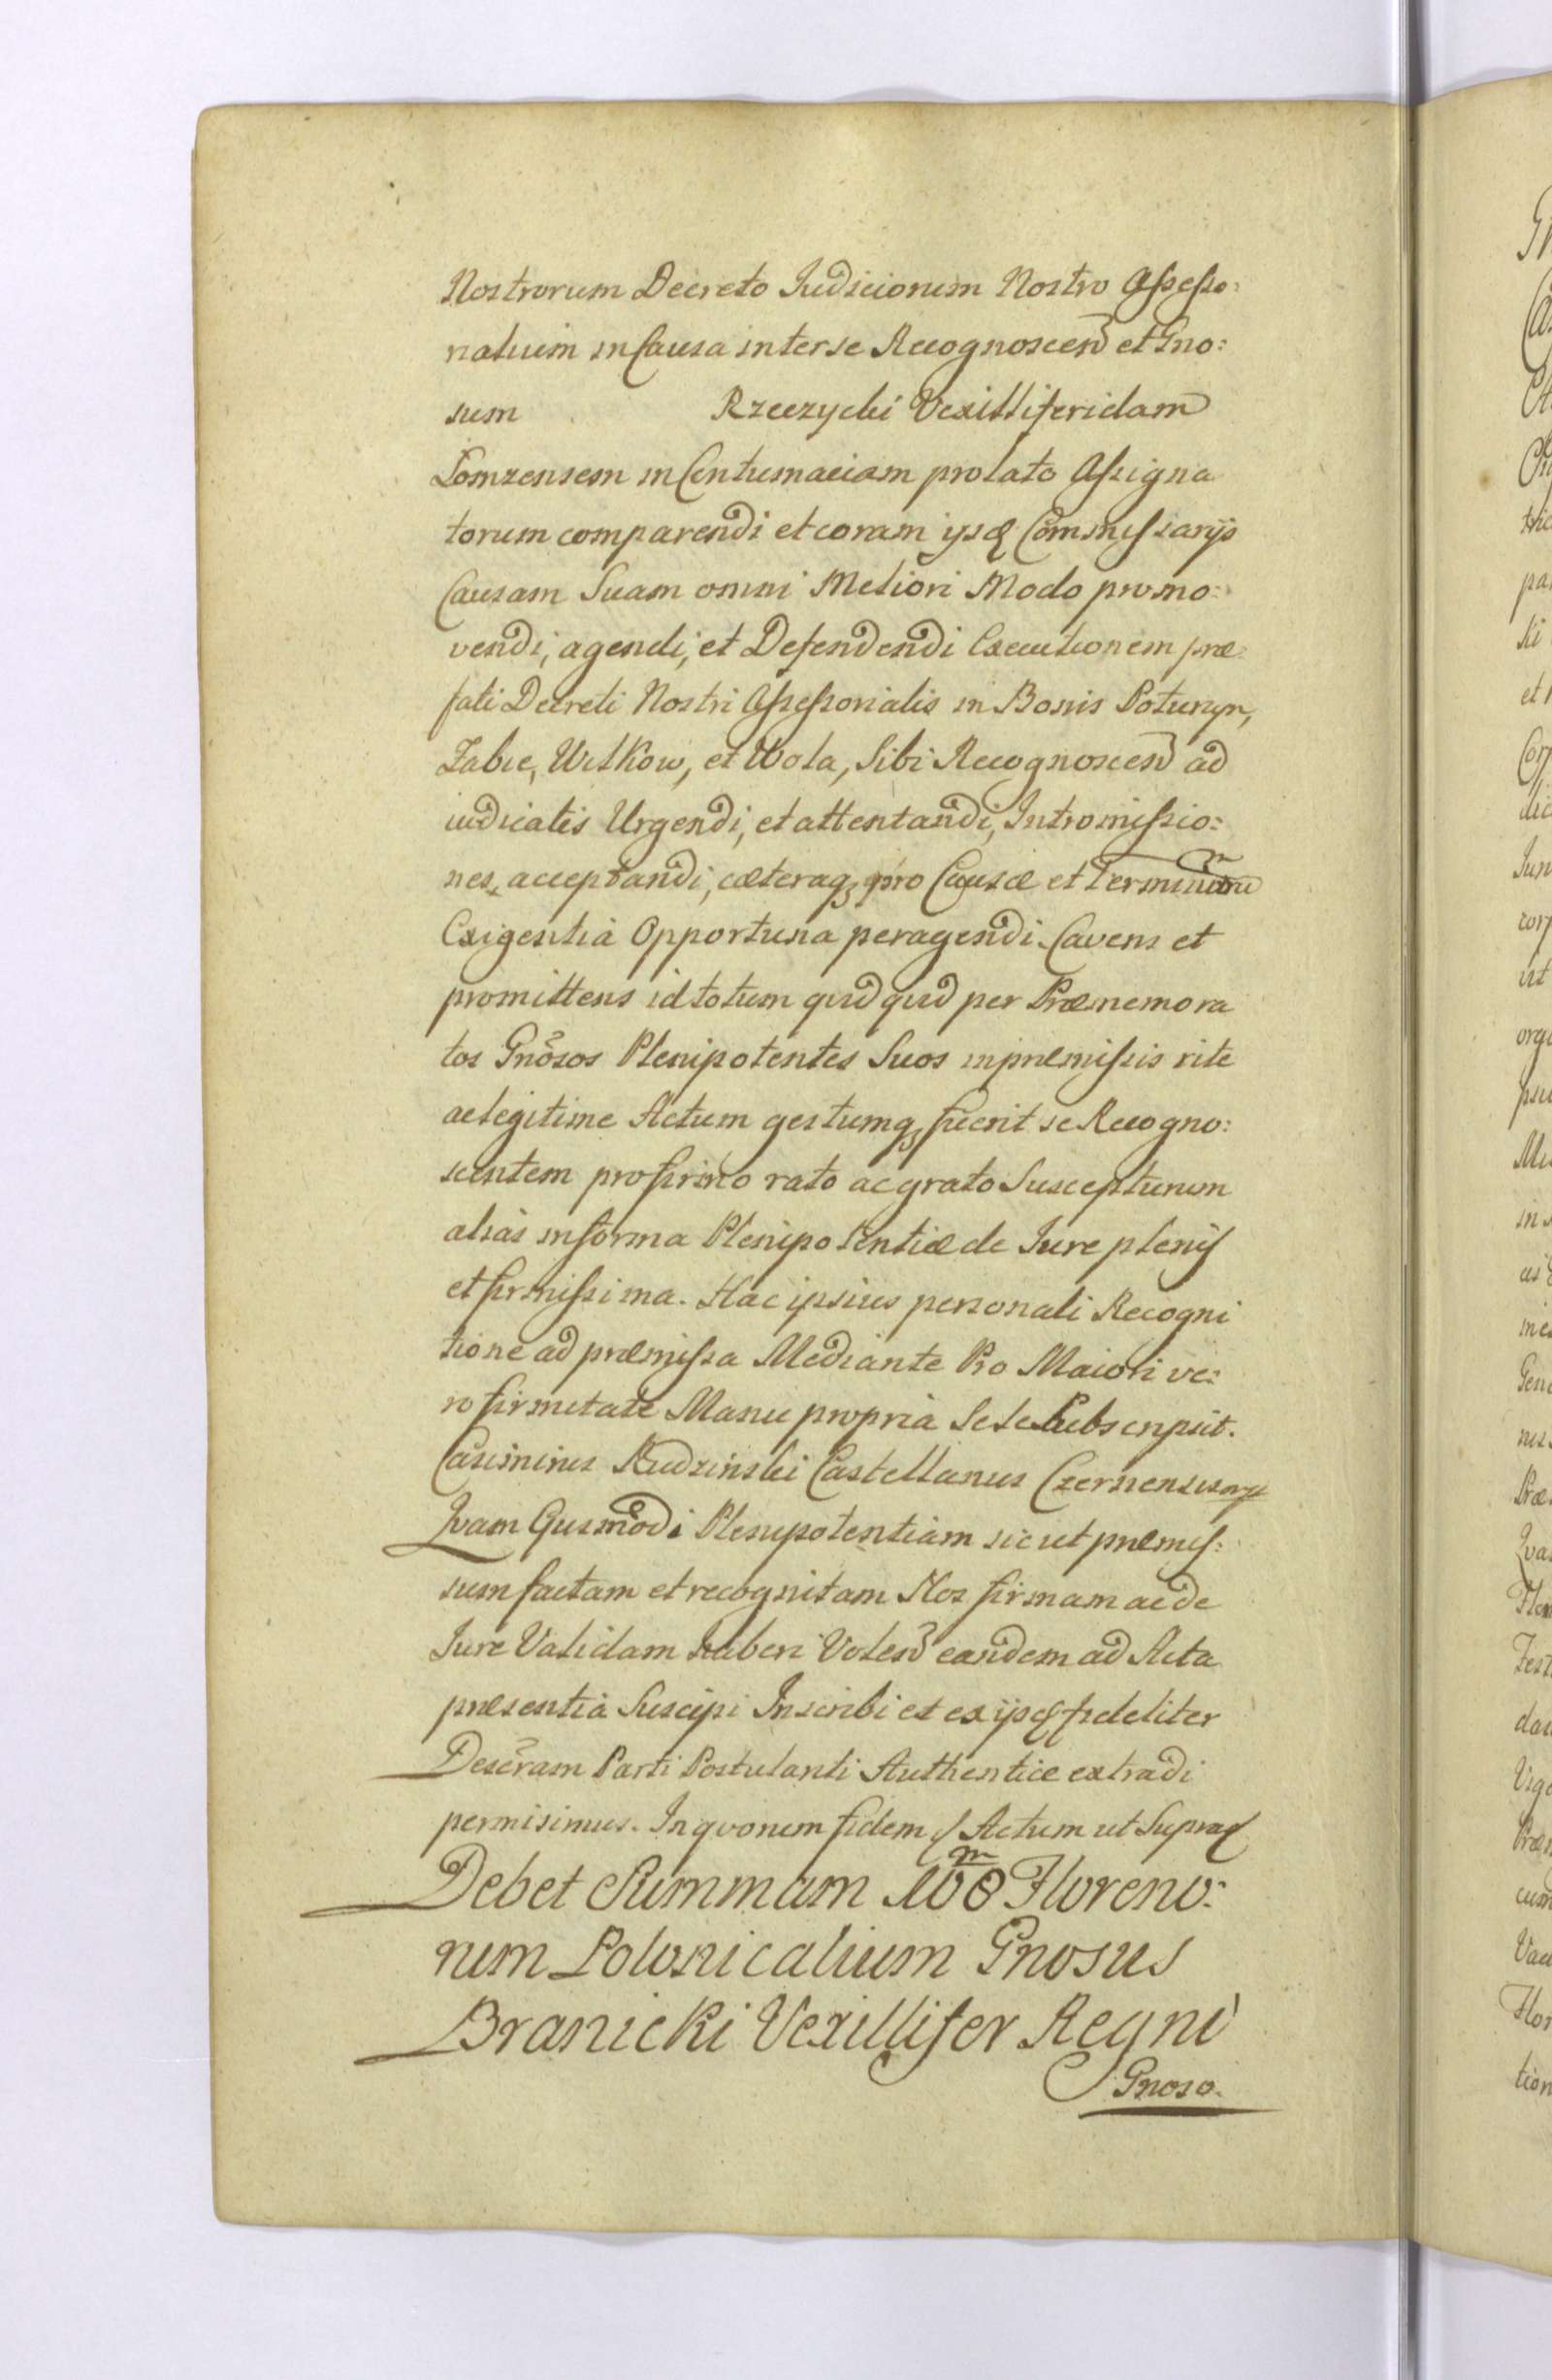 Nostrorum Decreto Iudiciorum Nostro Assesso:
rialium in Causa inter se Recognoscen et Gno:
sum Rzeczycki Vexilliferidam
Lomzensem in Contumaciam prolato Assigna
torum comparendi et coram ijsd Commissarijs
Causam Suam omni Meliori Modo promo:
vendi, agendi, et Defendendi Executionem præ:
fati Decreti Nostri Assessorialis in Bonis Poturzyn,
Zabie, Witkow, et Wola, Sibi Recognoscen ad
iudicatis Urgendi, et attentandi, Intromissio:
nes, acceptandi, cæteraq pro Causæ et Terminorum
Exigentia Opportuna peragendi. Cavens et
promittens id totum quidquid per Prænemora
tos Gnosos Plenipotentes Suos in præmissis rite
ac legitime Actum gestumq fuerit se Recogno:
scentem pro firmo rato ac grato Suscepturum
alias in forma Plenipotentiæ de Iure pleniss
et firmissima. Hac ipsius personali Recogni
tione ad præmissa Mediante Pro Maiori ve:
ro firmitate Manu propria Sese Subscripsit.
Casimirus Rudzinski Castellanus Czernensis mp
Quam Eiusmodi Plenipotentiam sic ut præmis:
sum factam et recognitam Nos firmam ac de
Iure Validam haberi Volen eandem ad Acta
præsentia Suscipi Inscribi et ex ijsd fideliter
Descram Parti Postulanti Authentice extradi
permisimus. In quorum fidem & Actum ut Supra
Debet Summam 108 m Floreno:
rum Polonicalium Gnosus
Branicki Vexillifer Regni
Gnoso.